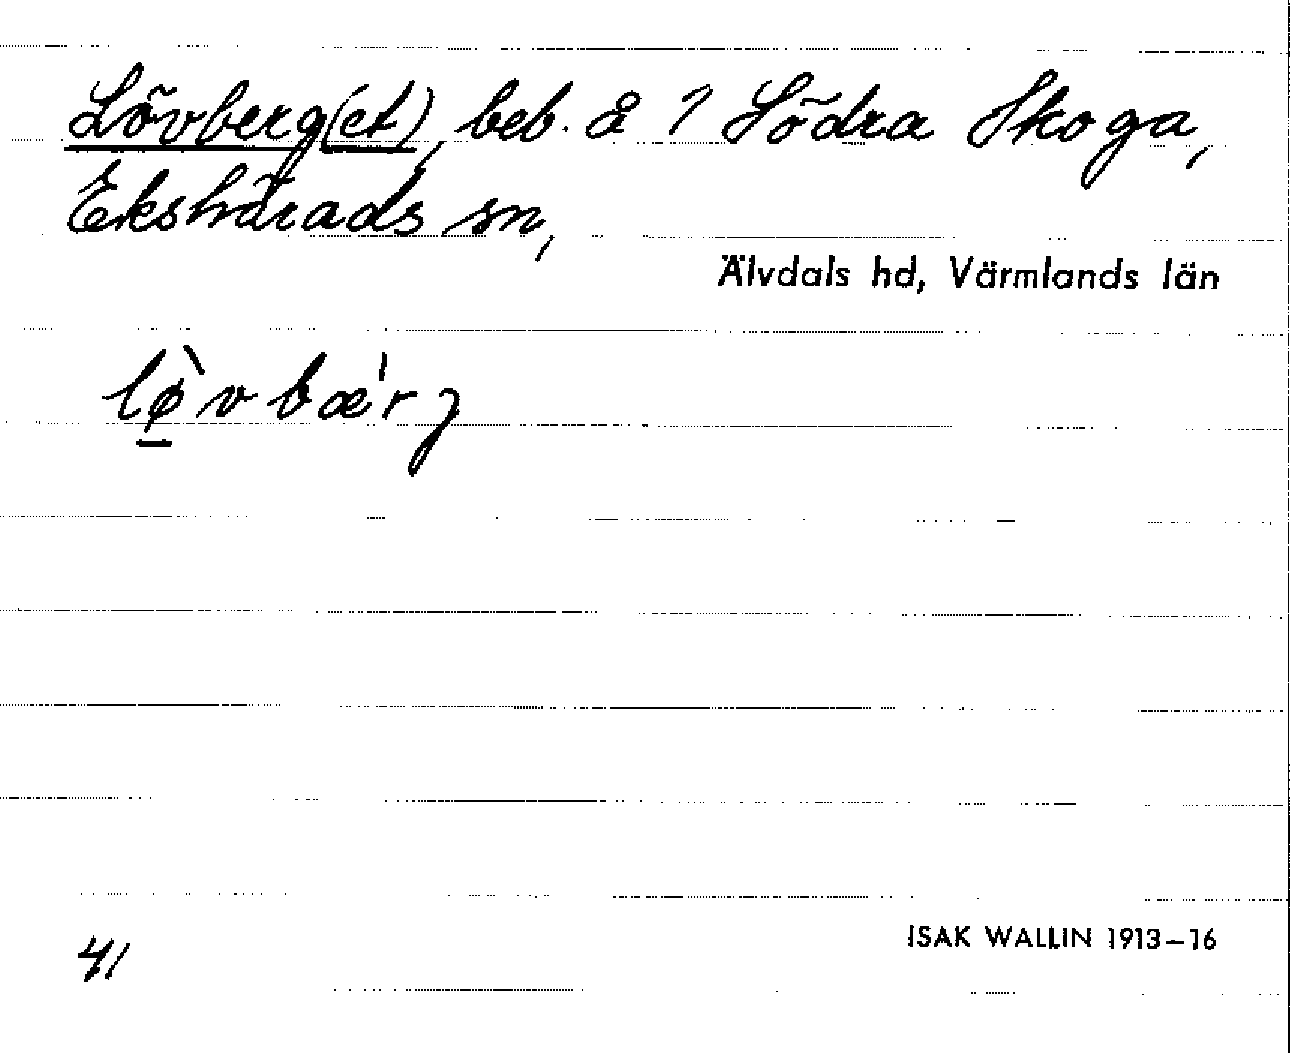 Lövberg(et), beb. å ? Södra Skoga,
Ekshärads sn,
Älvdals hd, Värmlands län
lø̀vbæ'rʒ
41
ISAK WALLIN 1913–16